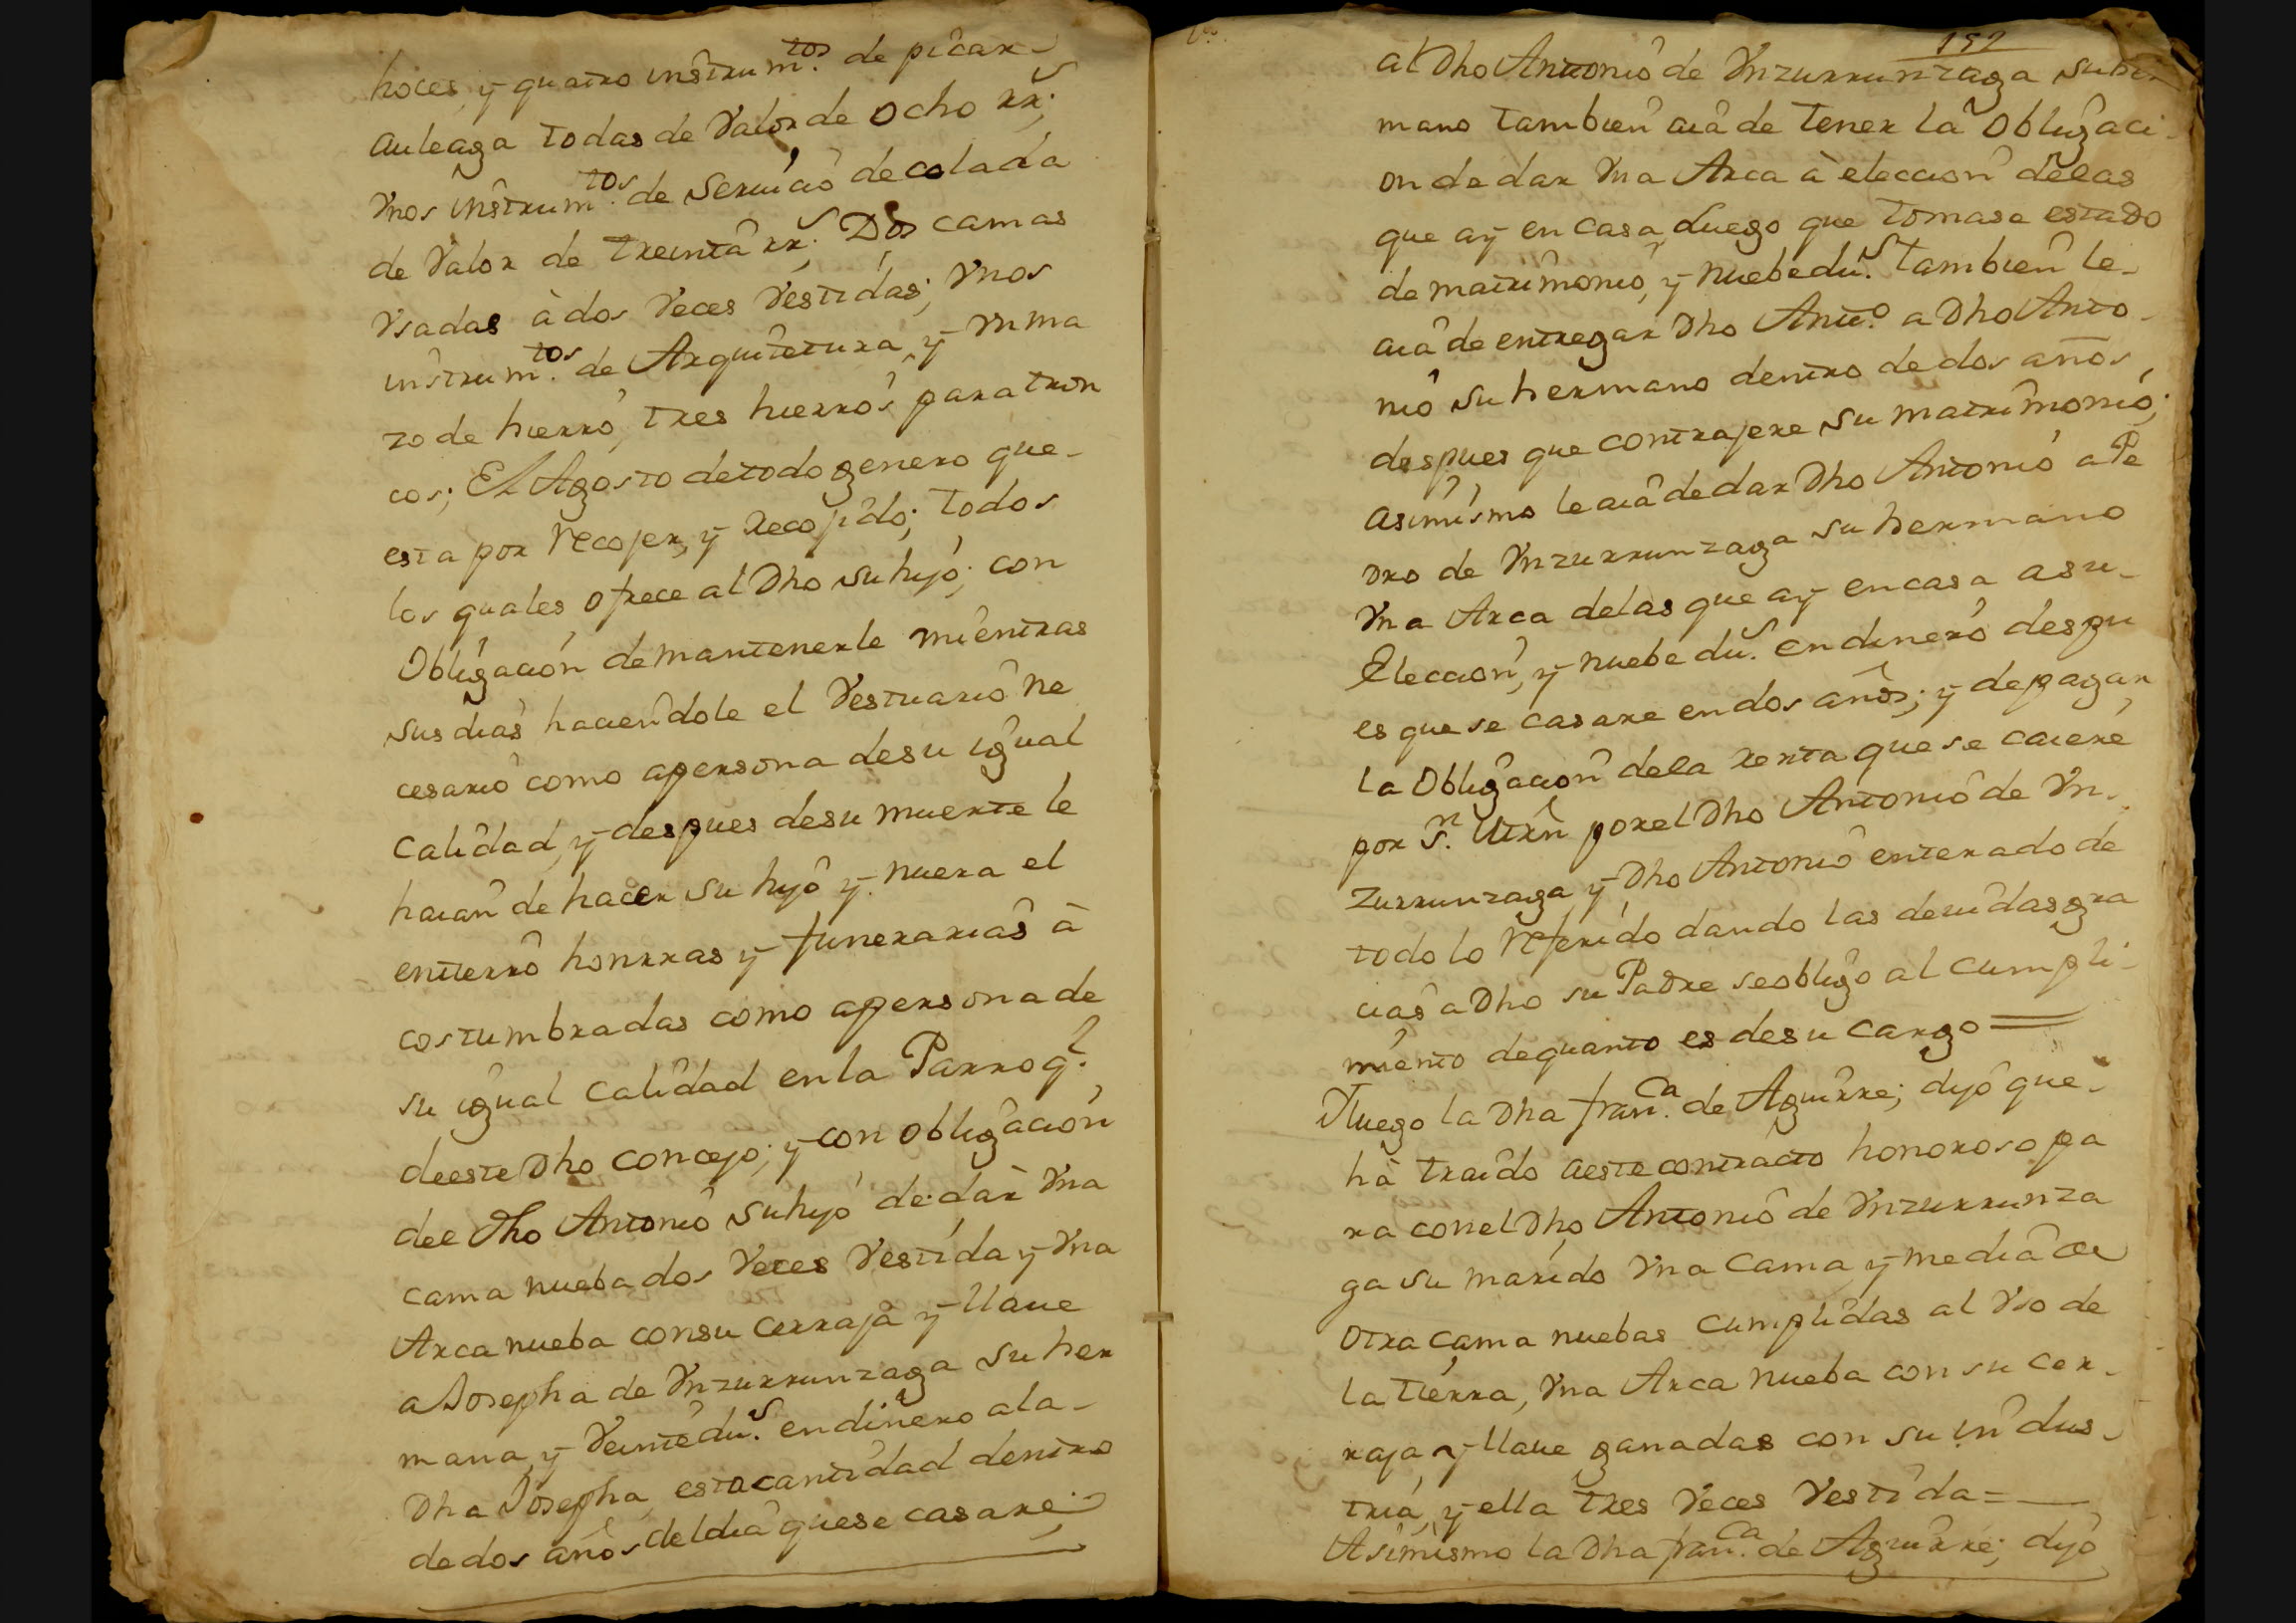 hoces, y quatro instrum.tos de picar
auleaga todas de Valor de ocho rr.s;
Ynos instrum.tos de seruicio de colada
de Valor de treinta rr.s; Dos camas
Vsadas à dos Veces Vestidas; Ynos
instrum.tos de Arquitetura, y Yn ma
zo de hierro, tres hierros para tron
cos; El Agosto de todo genero que
esta por recojer, y recojido; todos
los quales ofrece al Dho su hijo; con
Obligacion de mantenerle mientras
sus dias haciendole el Vestuario ne
cesario como a persona de su igual
Calidad, y despues de su muerte le
haian de hacer su hijo y nuera el
entierro honrras y funerarias à
costumbradas como a persona de
su igual calidad en la Parroq.l
de este Dho concejo; y con obligacion
del Dho Antonio su hijo de dar Yna
cama nueba dos Veces Vestida y Yna
Arca nueba con su cerraja y llaue
a Josepha de Ynzurrunzaga su her
mana, y Veinte du.s en dinero a la
Dha Josepha, esta cantidad dentro
de dos años del dia que se casare;
192
al Dho Antonio de Ynzurrunzaga su her
mano tambien aia de tener la obligaci
on de dar Yna Arca à eleccion de las
que ay en casa luego que tomase estado
de matrimonio, y nuebe du.s tambien le
aia de entregar Dho Ant.o a Dho Anto
nio su hermano dentro de dos años,
despues que contrajere su matrimonio;
asimismo le aia de dar Dho Antonio a Pe
dro de Ynzurrunzaga su hermano
Yna Arca de las que ay en casa a su
Eleccion, y nuebe du.s en dinero despu
es que se casare en dos años; y de pagar
la Obligacion de la renta que se caiere
por S.n Mrn por el Dho Antonio de Yn
zurrunzaga, y Dho Antonio enterado de
todo lo referido dando las deuidas gra
cias a Dho su Padre se obligo al cumpli
miento de quanto es de su cargo =
Y luego la Dha fran.ca de Aguirre; dijo que
hà traido a este contracto honoroso pa
ra con el Dho Antonio de Ynzurrunza
ga su marido Yna Cama, y media de
otra cama nuebas cumplidas al Vso de
la tierra, Yna Arca nueba con su cer
raja y llaue ganadas con su indus
tria, y ella tres Veces Vestida =
Asimismo la Dha fran.ca de Aguirre; dijo